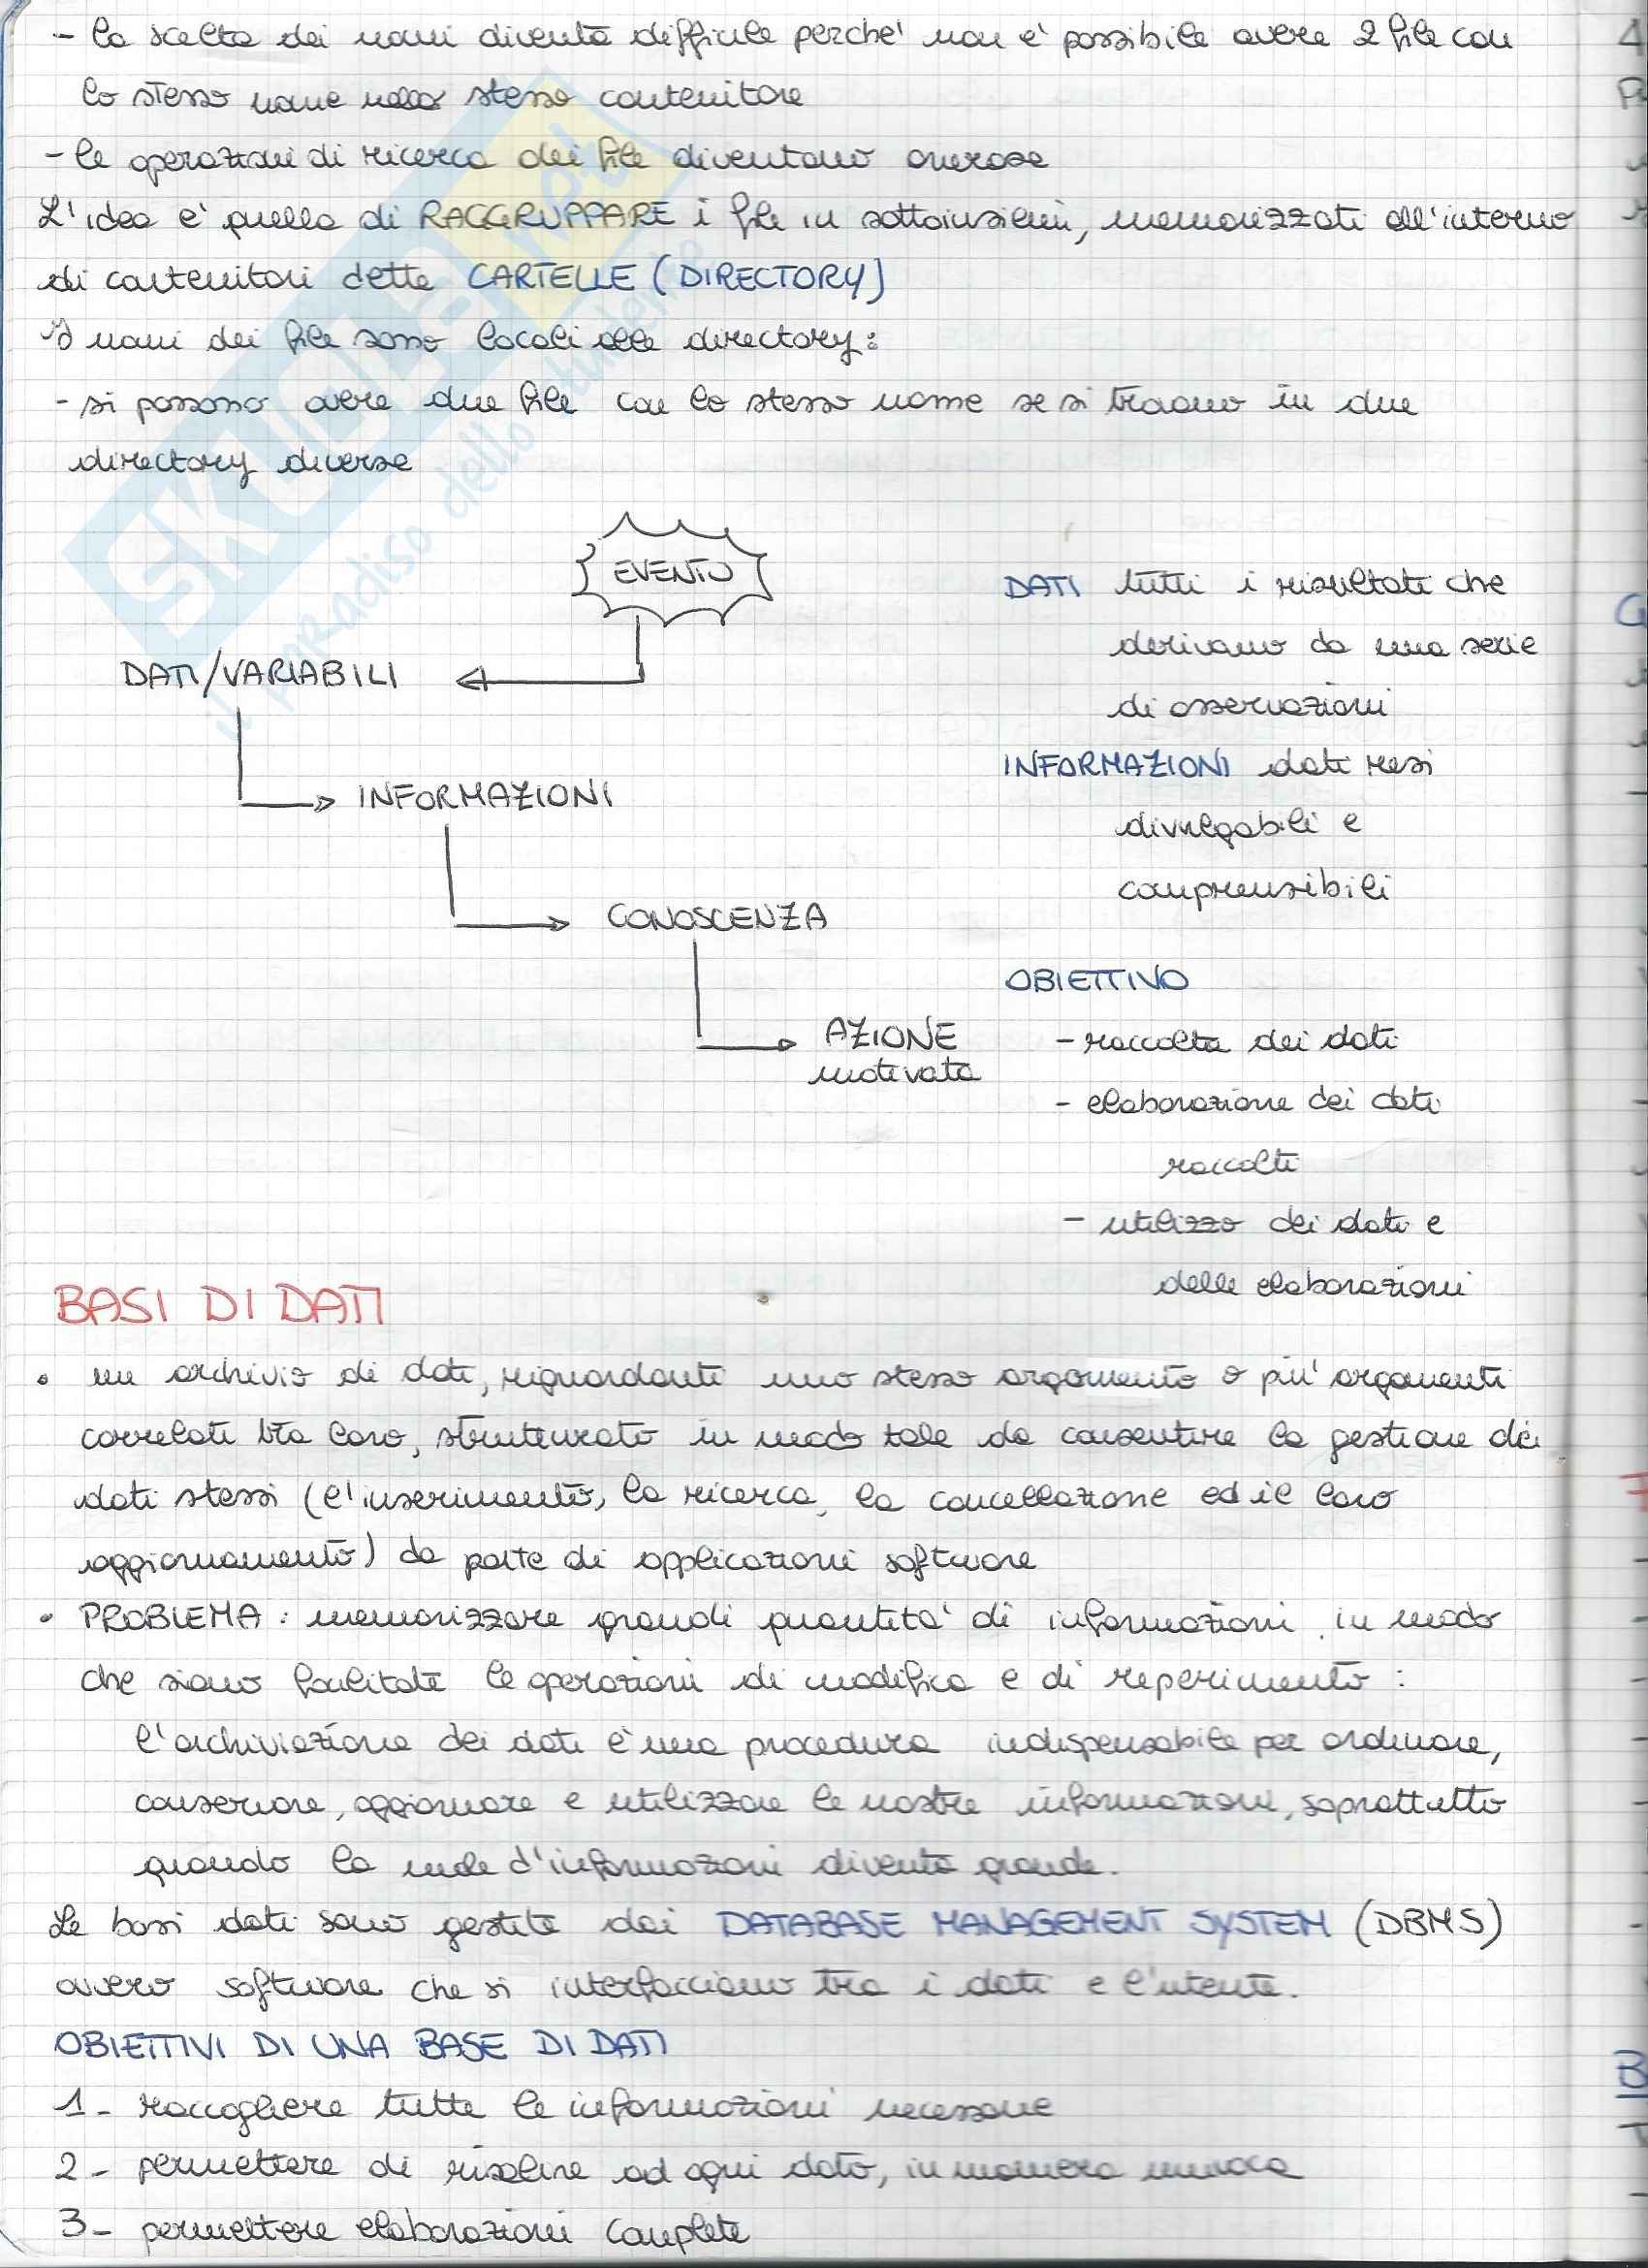 - la scelta dei nomi diventa difficile perche' non e' possibile avere 2 file con
lo stesso nome nello stesso contenitore
- le operazioni di ricerca dei file diventano onerose
L'idea e' quella di RAGGRUPPARE i file in sottoinsiemi, memorizzati all'interno
di contenitori dette CARTELLE (DIRECTORY)
I nomi dei file sono locali alle directory:
- si possono avere due file con lo stesso nome se si trovano in due
directory diverse
EVENTO
DATI/VARIABILI
INFORMAZIONI
CONOSCENZA
AZIONE
motivata
DATI tutti i risultati che
derivano da una serie
di osservazioni
INFORMAZIONI dati resi
divulgabili e
comprensibili
OBIETTIVO
- raccolta dei dati
- elaborazione dei dati
raccolti
- utilizzo dei dati e
delle elaborazioni
BASI DI DATI
• un archivio di dati, riguardanti uno stesso argomento o piu' argomenti
correlati tra loro, strutturato in modo tale da consentire la gestione dei
dati stessi (l'inserimento, la ricerca, la cancellazione ed il loro
aggiornamento) da parte di applicazioni software
• PROBLEMA: memorizzare grandi quantita' di informazioni in modo
che siano facilitate le operazioni di modifica e di reperimento:
l'archiviazione dei dati e' una procedura indispensabile per ordinare,
conservare, aggiornare e utilizzare le nostre informazioni, soprattutto
quando la mole d'informazioni diventa grande.
Le basi dati sono gestite dai DATABASE MANAGEMENT SYSTEM (DBMS)
ovvero software che si interfacciano tra i dati e l'utente.
OBIETTIVI DI UNA BASE DI DATI
1- raccogliere tutte le informazioni necessarie
2- permettere di risalire ad ogni dato, in maniera univoca
3- permettere elaborazioni complete
SKUOLA.net
il paradiso dello studente